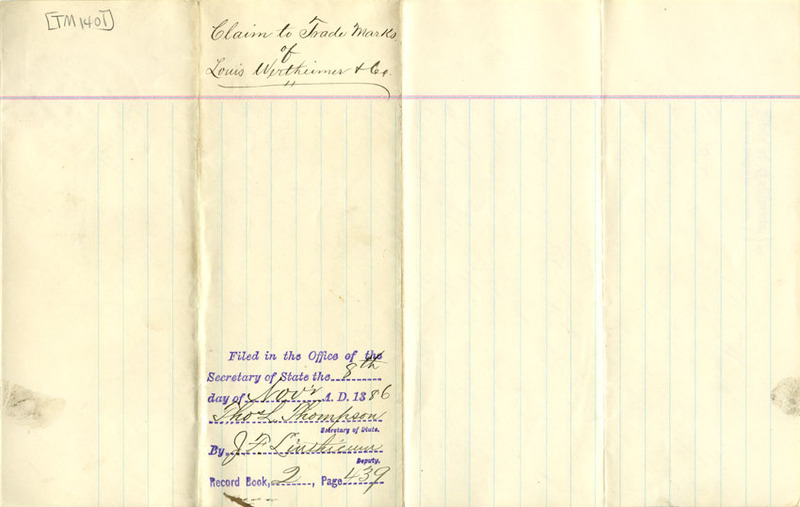 [TM1401]
Claim to Trade Marks
of
Louis Wertheimer & Co.
Filed in the Office of the
Secretary of State the 8th
day of Nov'r A. D. 1886
Thos L. Thompson
Secretary of State.
By J F Linthicum
Deputy.
Record Book, 2, Page 439